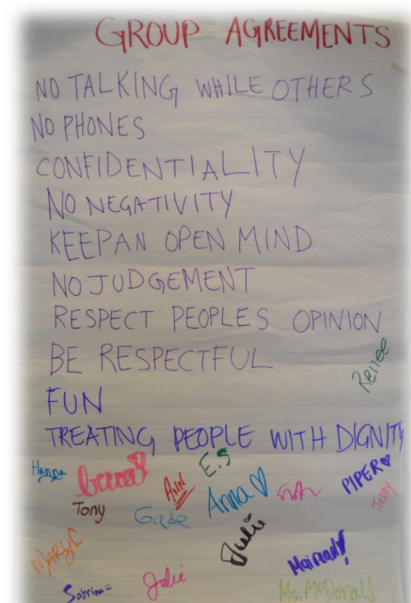 GROUP AGREEMENTS
NO TALKING WHILE OTHERS
NO PHONES
CONFIDENTIALITY
NO NEGATIVITY
KEEP AN OPEN MIND
NO JUDGEMENT
RESPECT PEOPLES OPINION
BE RESPECTFUL
Renee
FUN
TREATING PEOPLE WITH DIGNITY
Hanna
Ann
E.S
Anna
PIPER
Jenny
Tony
Mary C
Julie
Mairead
Sabrina
Jolie
Ms. McDonald